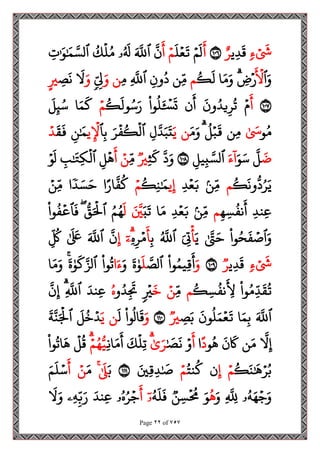 شَيْءٍ قَدِيرٌ ١٠٦ أَلَمْ تَعْلَمْ أَنَّ اللَّهَ لَهُۥ مُلْكُ السَّمَٰوَٰتِ
وَالْأَرْضِ وَمَا لَكُم مِّن دُونِ اللَّهِ مِن وَلِيٍّ وَلَا نَصِيرٍ
١٠٧ أَمْ تُرِيدُونَ أَن تَسْـَٔلُوا رَسُولَكُمْ كَمَا سُئِلَ
مُوسَىٰ مِن قَبْلُ وَمَن يَتَبَدَّلِ الْكُفْرَ بِالْإِيمَٰنِ فَقَد
ضَّلَّ سَوَآءَ السَّبِيلِ ١٠٨ وَدَّ كَثِيرٌ مِّنْ أَهْلِ الْكِتَٰبِ لَوْ
يَرُدُّونَكُم مِّنۢ بَعْدِ إِيمَٰنِكُمْ كُفَّارًا حَسَدًا مِّنْ
عِندِ أَنفُسِهِم مِّنۢ بَعْدِ مَا تَبَيَّنَ لَهُمُ الْحَقُّ فَاعْفُوا
وَاصْفَحُوا حَتَّىٰ يَأْتِيَ اللَّهُ بِأَمْرِهِۦٓ إِنَّ اللَّهَ عَلَىٰ كُلِّ
شَيْءٍ قَدِيرٌ ١٠٩ وَأَقِيمُوا الصَّلَوٰةَ وَءَاتُوا الزَّكَوٰةَ وَمَا
تُقَدِّمُوا لِأَنفُسِكُم مِّنْ خَيْرٍ تَجِدُوهُ عِندَ اللَّهِ إِنَّ
اللَّهَ بِمَا تَعْمَلُونَ بَصِيرٌ ١١٠ وَقَالُوا لَن يَدْخُلَ الْجَنَّةَ
إِلَّا مَن كَانَ هُودًا أَوْ نَصَٰرَىٰ تِلْكَ أَمَانِيُّهُمْ قُلْ هَاتُوا
بُرْهَٰنَكُمْ إِن كُنتُمْ صَٰدِقِينَ ١١١ بَلَىٰ مَنْ أَسْلَمَ
وَجْهَهُۥ لِلَّهِ وَهُوَ مُحْسِنٌ فَلَهُۥٓ أَجْرُهُۥ عِندَ رَبِّهِۦ وَلَا
Page ٢٢ of ٧٥٧